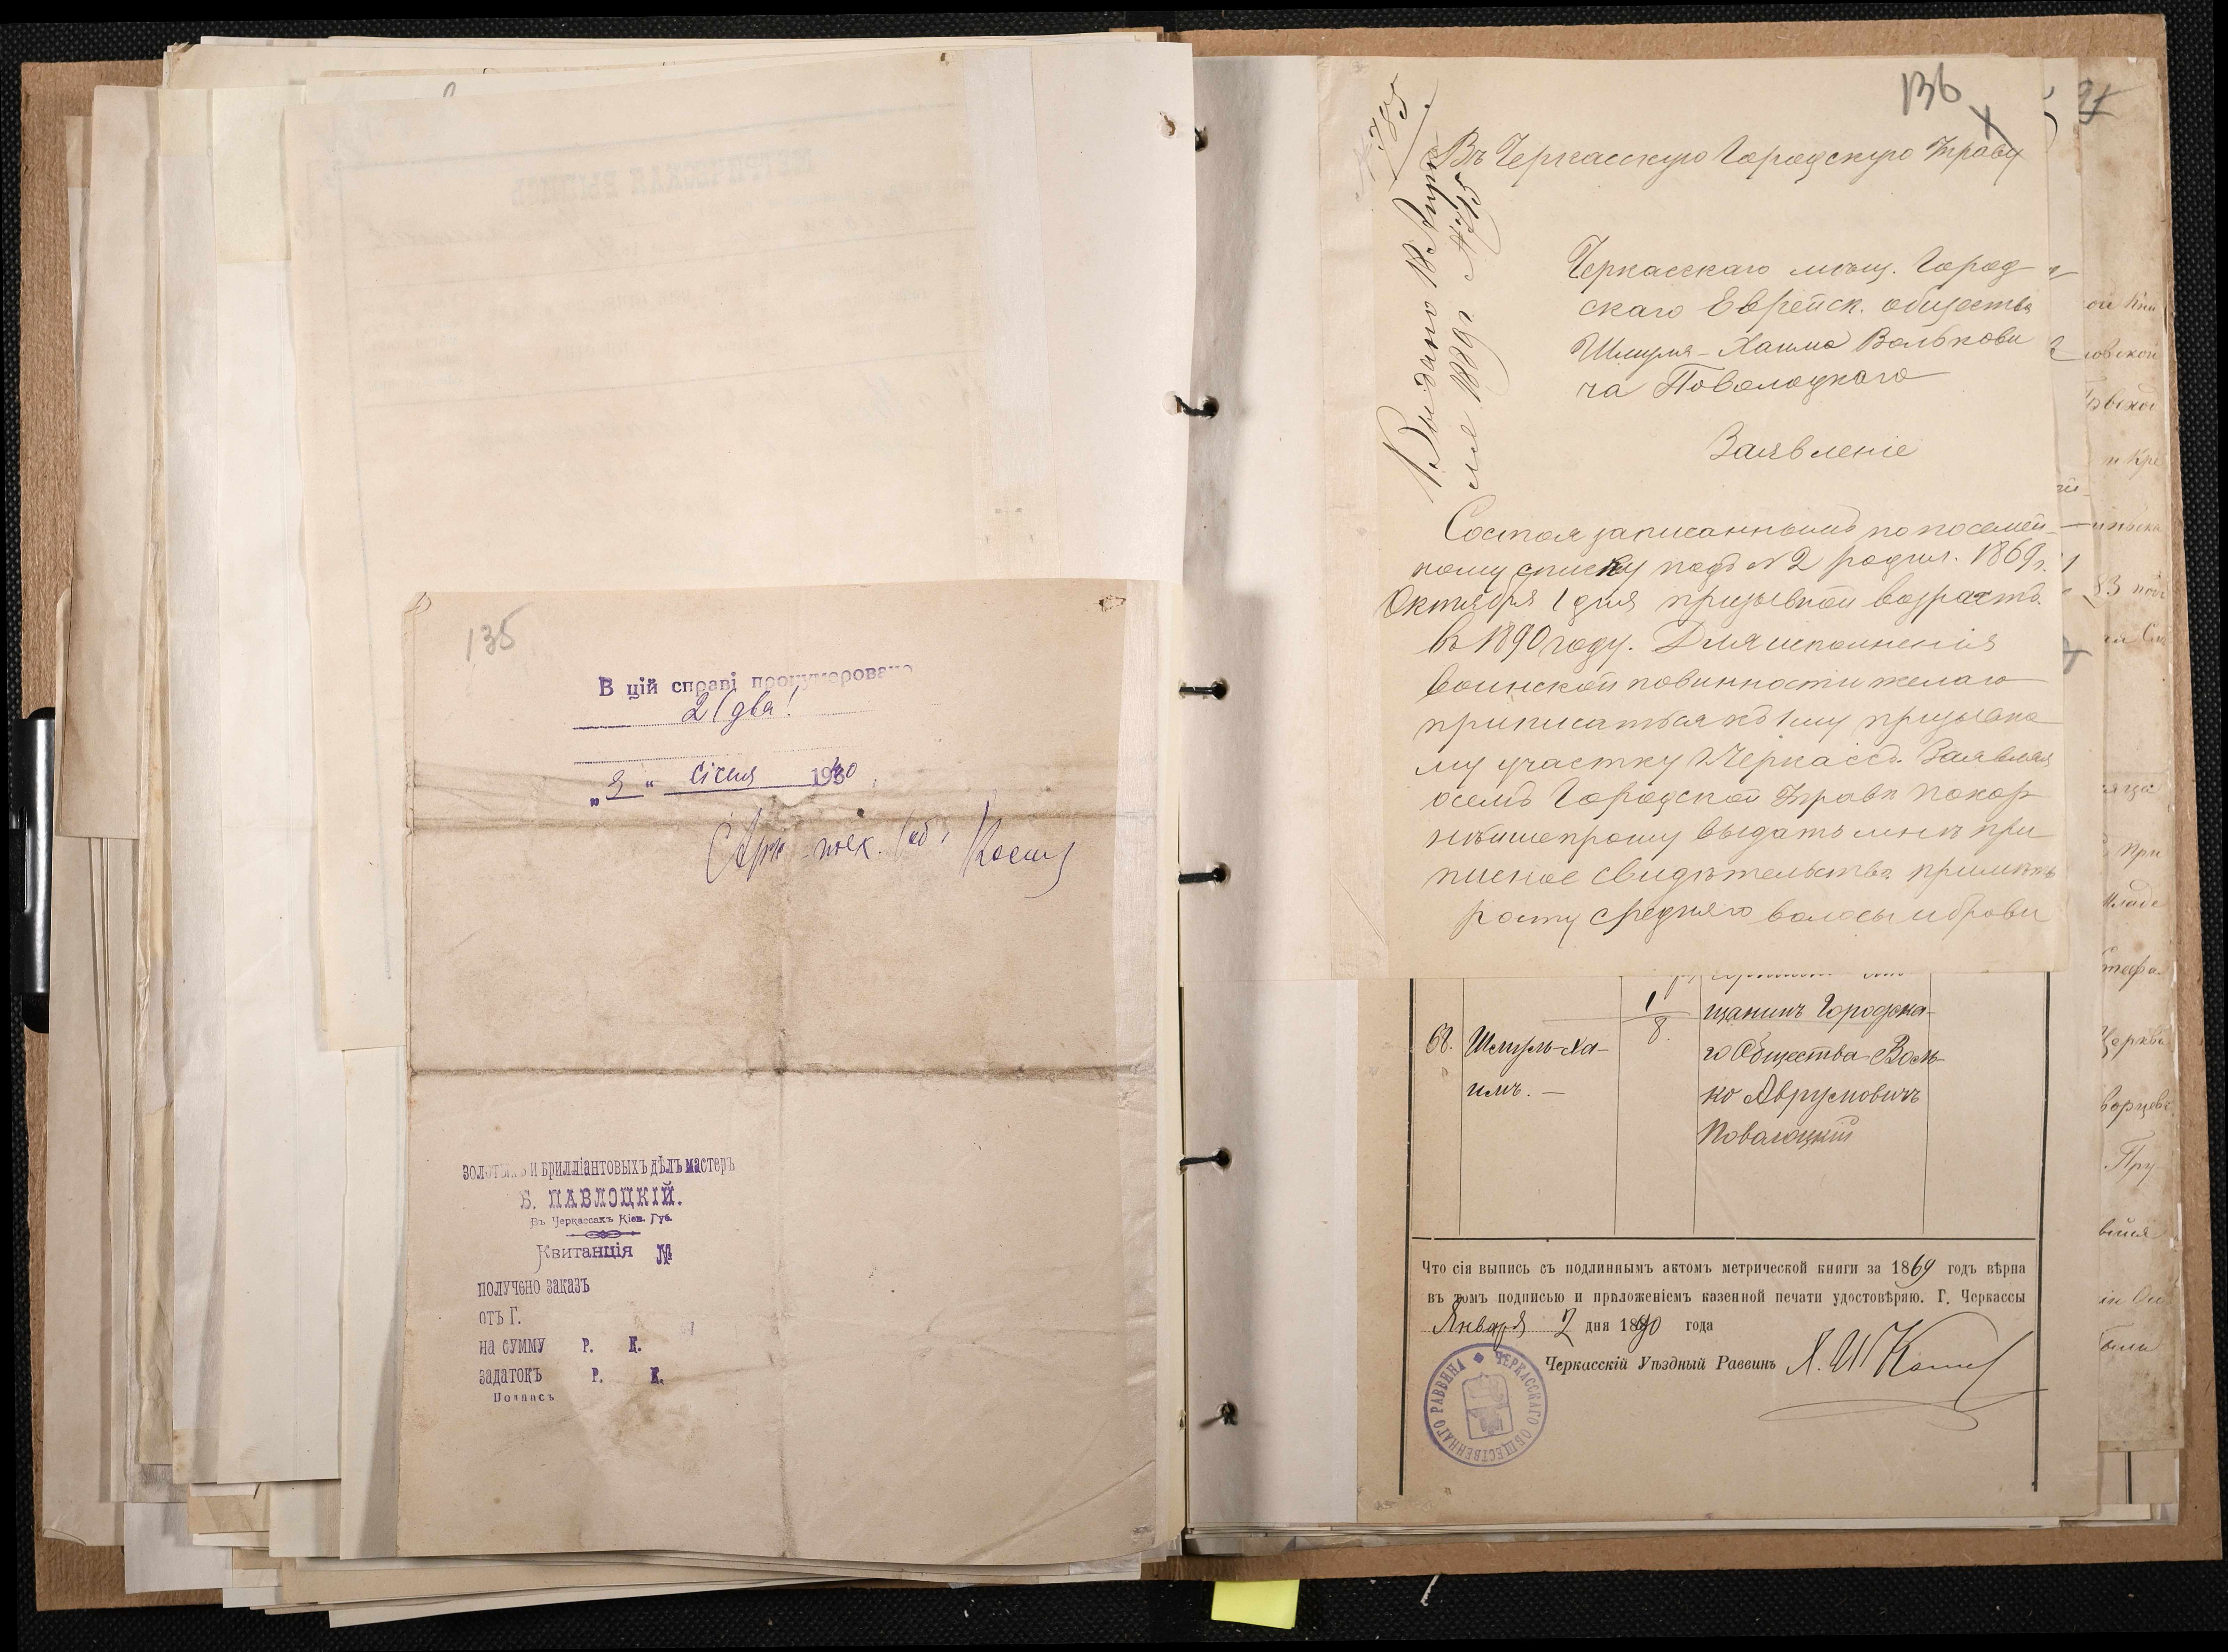 135
В цій справі пронумеровано
2 (два)
"9" січня 1940
золотыхъ и брилліантовыхъ дѣлъ мастеръ
Б. ПАВЛОЦКІЙ.
Въ Черкассахъ Кіев. Губ.
Квитанція №
получено заказъ
отъ Г.
на сумму Р. К.
задатокъ Р. К.
Подпись
136
Въ Черкасскую Городскую Управу
Черкасскаго мѣщ. Город
скаго Еврейск. общества
Шмуля-Хаима Волькови
ча Поволоцкаго
Заявленіе
Состоя записаннымъ по посемей-
ному списку подъ №2 родил. 1869 г.
Октября 1 дня призывной возрастъ
въ 1890 году. Для исполненія
воинской повинности желаю
приписаться къ 1му призывно
му участку г. Черкассъ. Заявляя
осемъ Городской Управѣ покор
нѣйше прошу выдать мнѣ при
писное свидѣтельство примѣты
росту средняго волосы и брови
68. Шмуль-Ха-
имъ. —
1
8
щанинъ Городска-
го Общества Воль-
ко Аврумовичъ
Поволоцкій
Что сія выпись съ подлиннымъ актомъ метрической книги за 1869 годъ вѣрна
въ томъ подписью и приложеніемъ казенной печати удостовѣряю. Г. Черкассы
Января 2 дня 1890 года
Черкасскій Уѣздный Раввинъ
ЧЕРКАССКАГО ОБЩЕСТВЕННАГО РАВВИНА